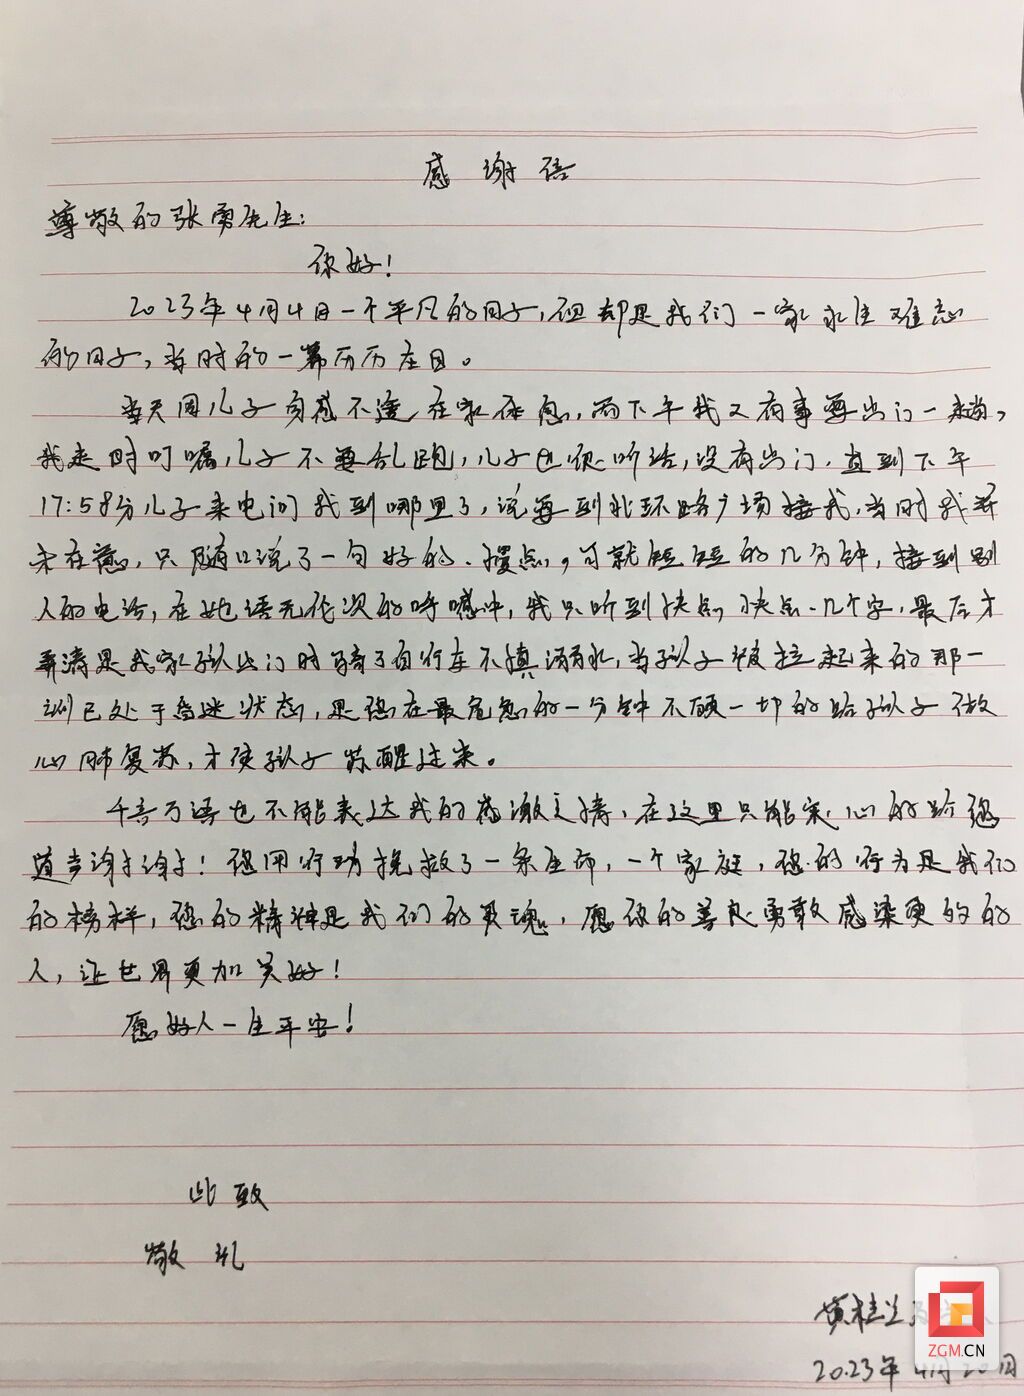 感谢信
尊敬的张勇先生:
你好!
2023年4月4日一个平凡的日子,但却是我们一家永生难忘
的日子,当时的一幕历历在目。
当天因儿子身感不适在家休息,而下午我又有事要出门一趟,
我走时叮嘱儿子不要乱跑,儿子也很听话,没有出门.直到下午
17:58分儿子来电问我到哪里了,说要到北环路广场接我,当时我并
未在意,只随口说了一句好的.慢点,可就短短的几分钟,接到别
人的电话,在她语无伦次的呼喊中,我只听到快点,快点.几个字,最后才
弄清是我家孩子出门时骑了自行车不慎溺水,当孩子被拉起来的那一
刻已处于昏迷状态,是您在最危急的一分钟不顾一切的给孩子做
心肺复苏,才使孩子苏醒过来。
千言万语也不能表达我的感激之情,在这里只能衷心的给您
道声谢谢!您用行动挽救了一条生命,一个家庭,您的行为是我们
的榜样,您的精神是我们的灵魂,愿你的善良勇敢感染更多的
人,让世界更加美好!
愿好人一生平安!
此致
敬礼
黄桂兰
2023年4月20日
ZGM.CN